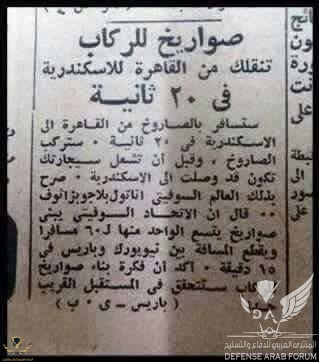 صواريخ للركاب
تنقلك من القاهرة للاسكندرية
فى ٢٠ ثانية
ستسافر بالصاروخ من القاهرة الى
الاسكندرية فى ٢٠ ثانية ٠ ستركب
الصاروخ ، وقبل أن تشعل سيجارتك
تكون قد وصلت الى الاسكندرية ٠ صرح
بذلك العالم السوفيتى اناتول بلاجونرافوف
٠٠ قال ان الاتحاد السوفيتى يبنى
صواريخ يتسع الواحد منها لـ ٦٠ مسافرا
ويقطع المسافة بين نيويورك وباريس فى
١٥ دقيقة ٠ أكد أن فكرة بناء صواريخ
ركاب ستتحقق فى المستقبل القريب
( باريس ـ ى ٠ ب )
المنتدى العربي للدفاع والتسليح
DEFENSE ARAB FORUM